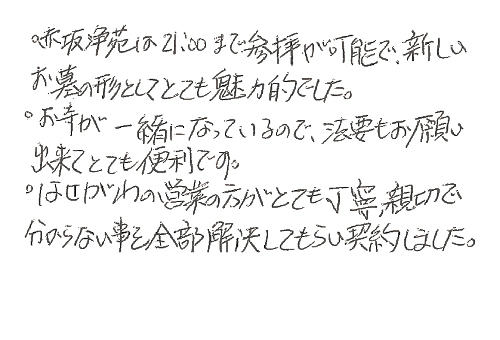 ○赤坂浄苑は21:00まで参拝が可能で、新しい
お墓の形としてとても魅力的でした。
○お寺が一緒になっているので、法要もお願い
出来てとても便利です。
○はせがわの営業の方がとても丁寧、親切で
分からない事を全部解決してもらい契約しました。